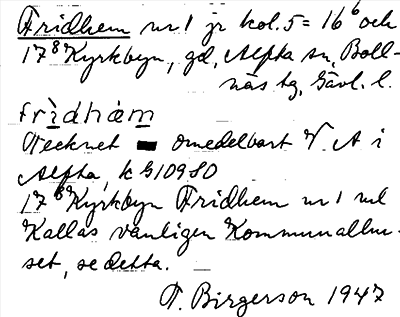 Fridhem nr 1 jr kol. 5 = 16⁶ och
17⁸ Kyrkbyn, gd, Alfta sn, Boll-
näs tg, Gävl. l.
frìdhàm
Tecknet omedelbart V. A i
Alfta, k G10980
17⁸ Kyrkbyn Fridhem nr 1 ml
Kallas vanligen Kommunalhu-
set, se detta.
T. Birgerson 1947